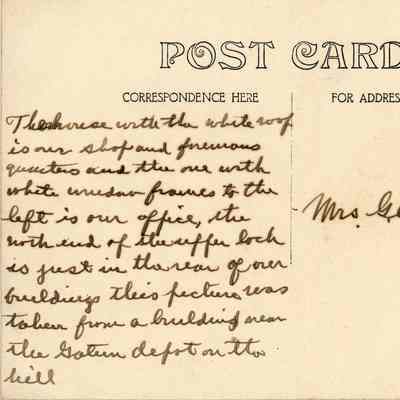 POST CARD
CORRESPONDENCE HERE
FOR ADDRES
The house with the white roof
is our shop and foremans
quarters and the one with
white window frames to the
left is our office, the
north end of the upper lock
is just in the rear of our
buildings this picture was
taken from a building near
the Gatun depot on the
hill
Mrs. Ge